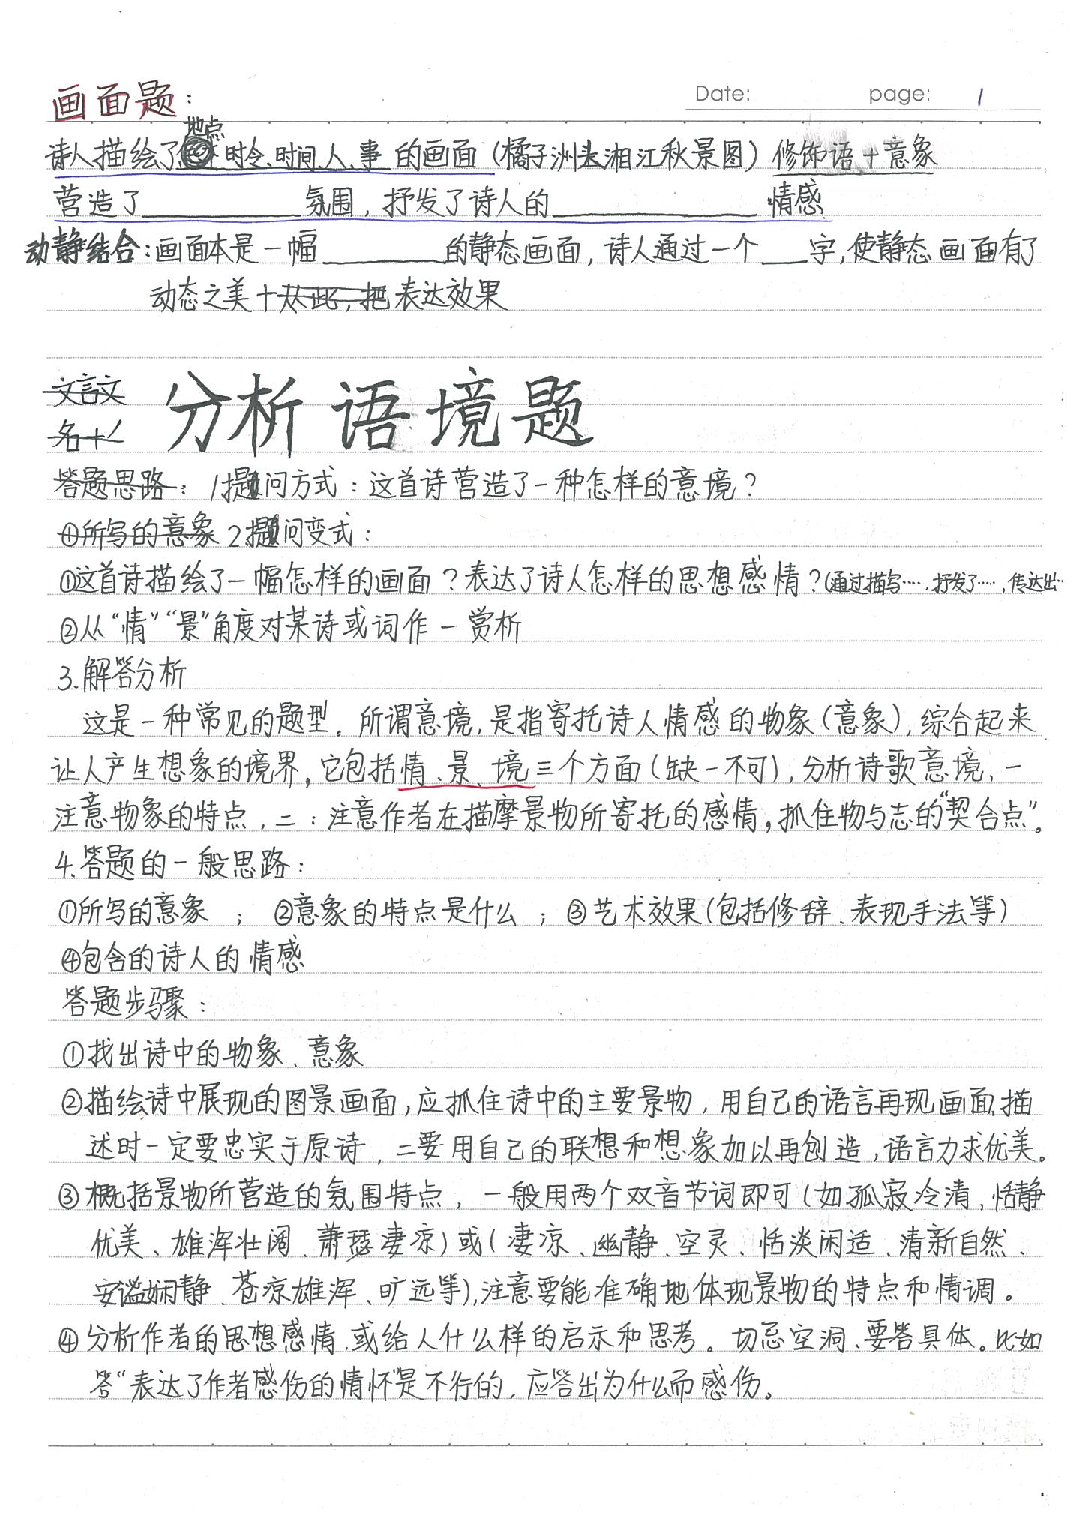 Date: page: 1
画面题：
地点
诗人描绘了 时令、时间、人、事 的画面（橘子洲头湘江秋景图）修饰语+意象
营造了________氛围，抒发了诗人的________情感
动静结合：画面本是一幅______的静态画面，诗人通过一个__字，使静态画面有了
动态之美+从此，把表达效果
文言文 分析语境题
答题思路：1提问方式：这首诗营造了一种怎样的意境？
①所写的意象 2提问变式：
①这首诗描绘了一幅怎样的画面？表达了诗人怎样的思想感情？（通过描写……，抒发了……，传达出…
②从“情”“景”角度对某诗或词作一赏析
3.解答分析
这是一种常见的题型。所谓意境，是指寄托诗人情感的物象（意象），综合起来
让人产生想象的境界，它包括情、景、境三个方面（缺一不可），分析诗歌意境，一
注意物象的特点，二：注意作者在描摩景物所寄托的感情，抓住物与志的“契合点”。
4.答题的一般思路：
①所写的意象 ； ②意象的特点是什么 ； ③艺术效果（包括修辞、表现手法等）
④包含的诗人的情感
答题步骤：
①找出诗中的物象、意象
②描绘诗中展现的图景画面，应抓住诗中的主要景物，用自己的语言再现画面，描
述时一定要忠实于原诗，二要用自己的联想和想象加以再创造，语言力求优美。
③概括景物所营造的氛围特点，一般用两个双音节词即可（如孤寂冷清，恬静
优美、雄浑壮阔、萧瑟凄凉）或（凄凉、幽静、空灵、恬淡闲适、清新自然、
安谧娴静、苍凉雄浑、旷远等），注意要能准确地体现景物的特点和情调。
④分析作者的思想感情，或给人什么样的启示和思考。切忌空洞、要答具体。比如
答“表达了作者感伤的情怀是不行的，应答出为什么而感伤。